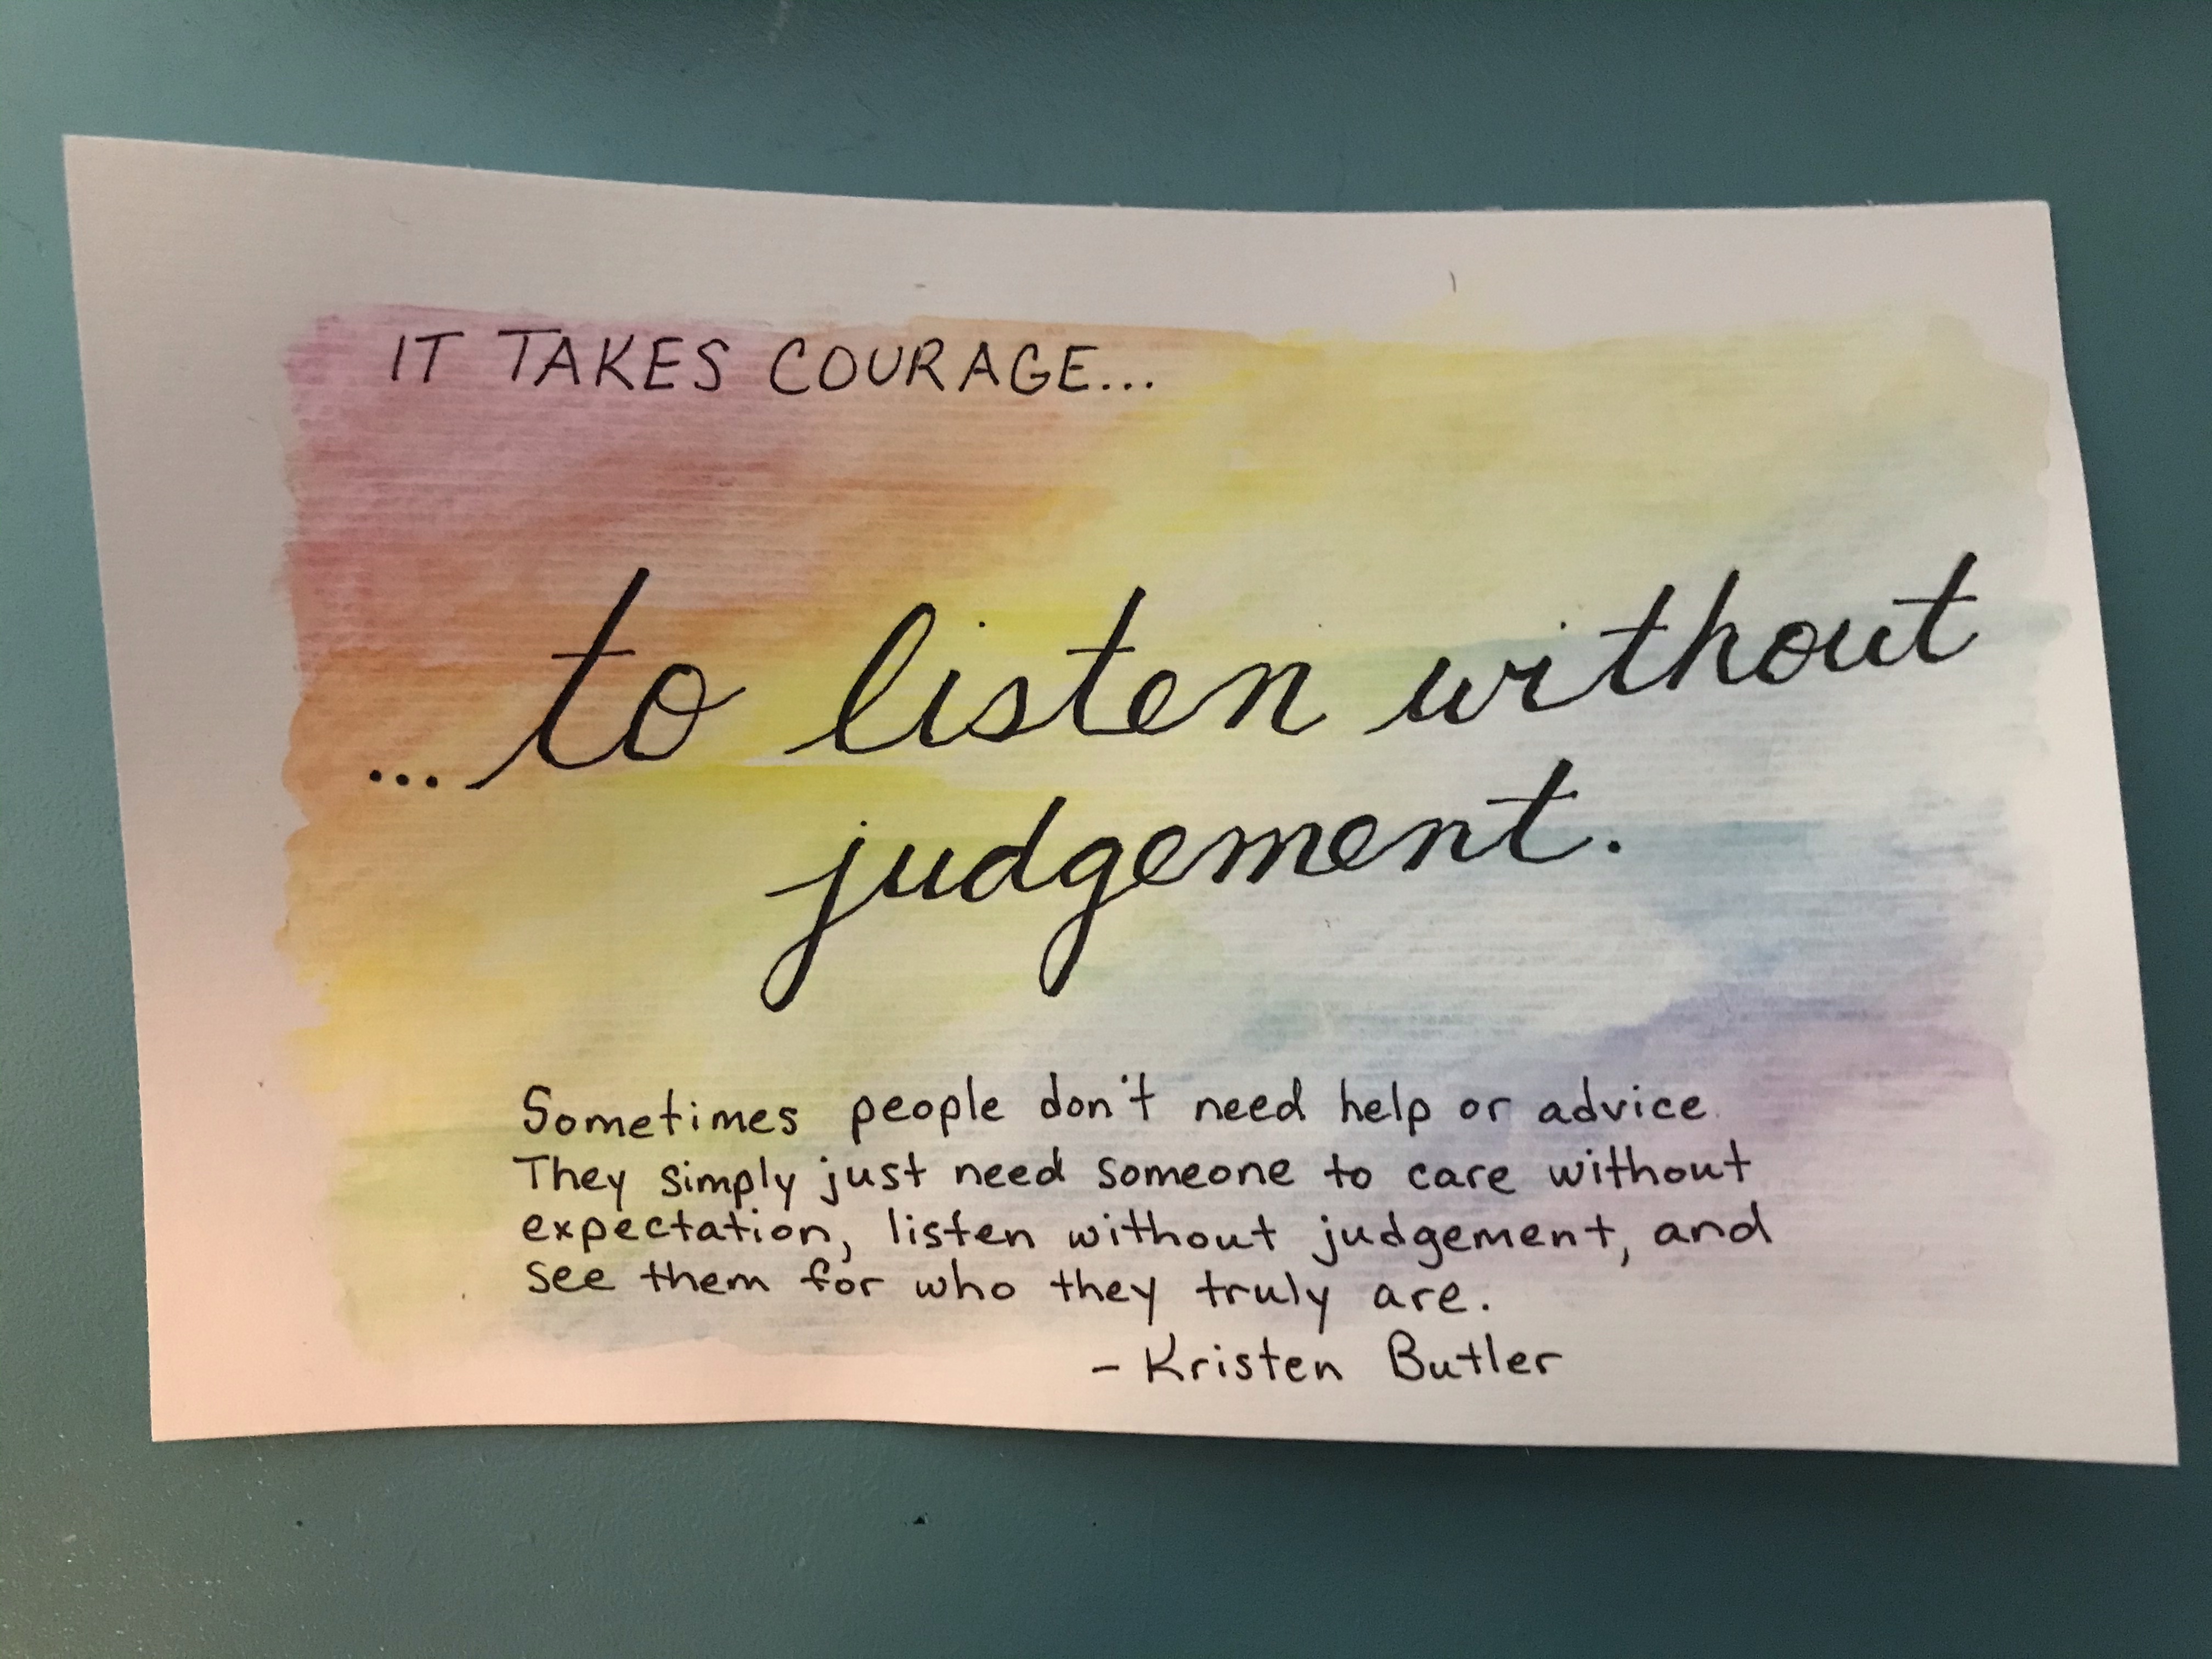 IT TAKES COURAGE...
...to listen without
judgement.
Sometimes people don't need help or advice.
They simply just need someone to care without
expectation, listen without judgement, and
see them for who they truly are.
- Kristen Butler